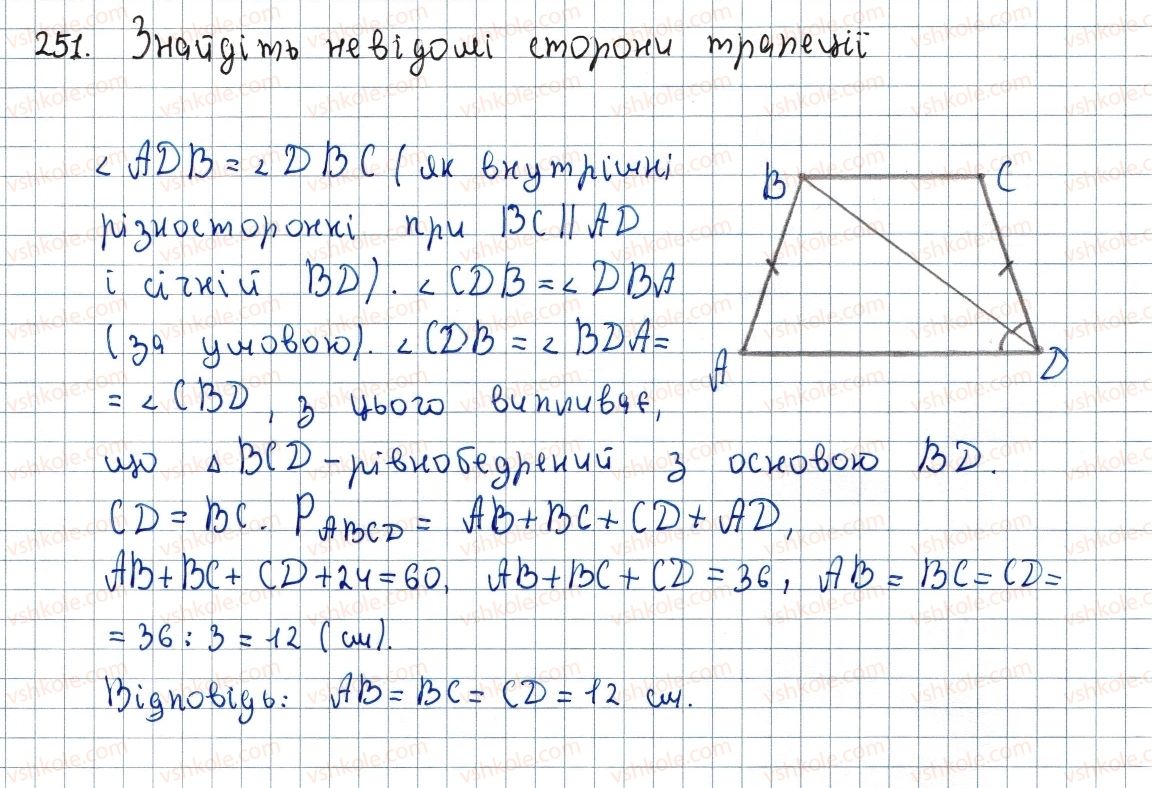 251. Знайдіть невідомі сторони трапеції
∠ADB = ∠DBC (як внутрішні
різносторонні при BC || AD
і січній BD). ∠CDB = ∠DBA
(за умовою). ∠CDB = ∠BDA =
= ∠CBD, з цього випливає,
що △BCD - рівнобедрений з основою BD.
CD = BC. P ABCD = AB + BC + CD + AD,
AB + BC + CD + 24 = 60, AB + BC + CD = 36, AB = BC = CD =
= 36 : 3 = 12 (см).
Відповідь: AB = BC = CD = 12 см.
B C
A D
vshkole.com